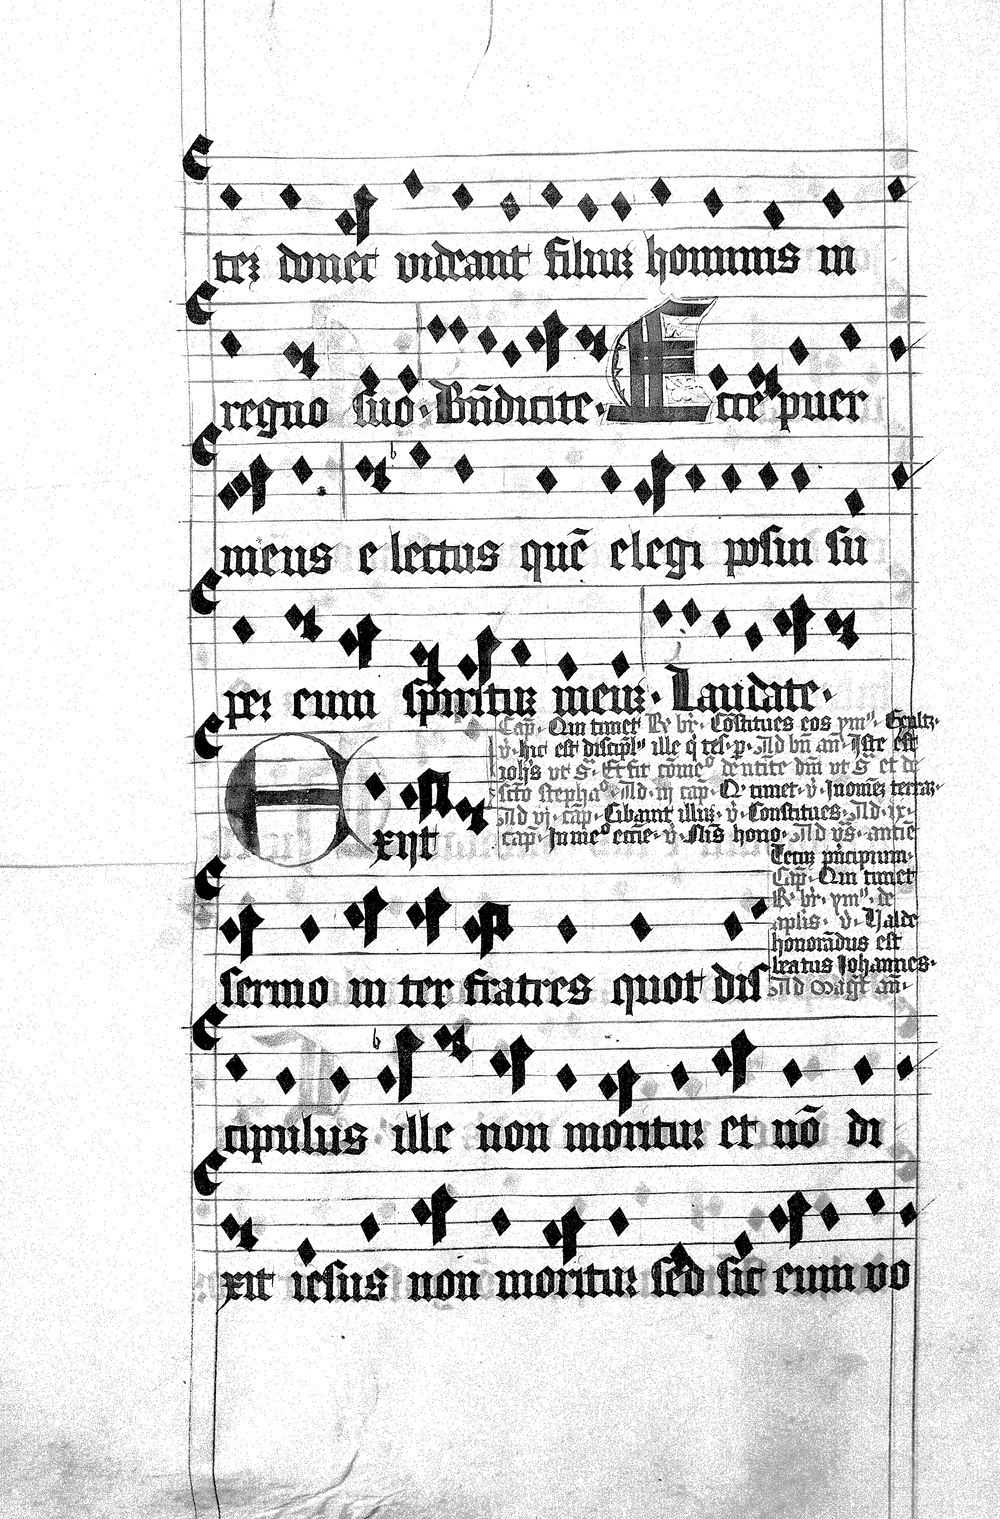 tez donec videant filiuz hominis in
regno suo · Bn̄dicite · Ecce puer
meus e lectus quē elegi posui su
per eum spirituz meuz · Laudate ·
Cap̄ · Qui timet R̄ br̄ · Cōstitues eos ym̅ · Exultz ·
v̄ · hic est discipl̄s ille q̄ tes · p · Ad bn̄ an̄ · Iste est
ioh̄s vt s̄ · Et fit cōme⁰ de
scto stepha⁰ · Ad iij cap̄ · Q timet · v̄ · In omēz terraz ·
Ad vj · cap̄ · Cibauit illuz · v̄ · Constitues · Ad · ix ·
cap̄ · In me⁰ eccīe · v̄ · Nīs hono · Ad vs̄ · antie
Tecuz pn̄cipium ·
Cap̄ · Qui timet
R̄ br̄ · ym̅ · de
aplis · v̄ · Valde
honorādus est
beatus Johannes ·
Ad magt̄ an̄ ·
Exijt
sermo in ter fratres quot dis
cipulus ille non moritur et nō di
xit iesus non moritur sed sic eum vo